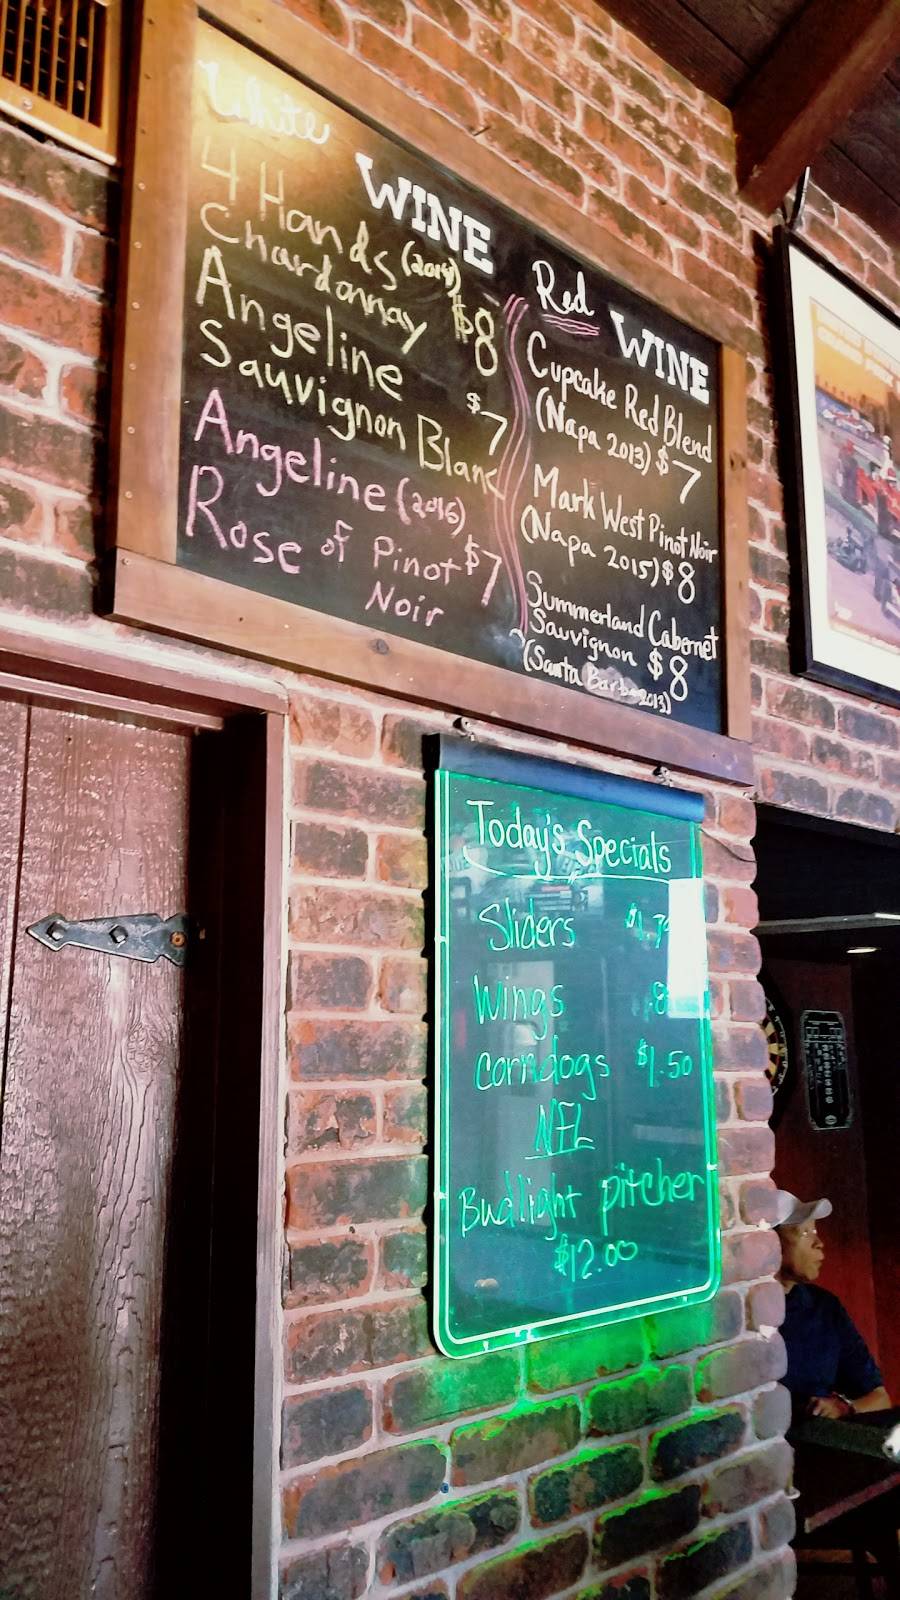 White
WINE
4 Hands (2014)
Chardonnay $8
Angeline
Sauvignon Blanc $7
Angeline (2016)
Rose of Pinot $7
Noir
Red
WINE
Cupcake Red Blend
(Napa 2013) $7
Mark West Pinot Noir
(Napa 2015) $8
Summerland Cabernet
Sauvignon $8
(Santa 2013)
Today's Specials
Sliders
Wings
Corndogs $1.50
NFL
Budlight pitcher
$12.00